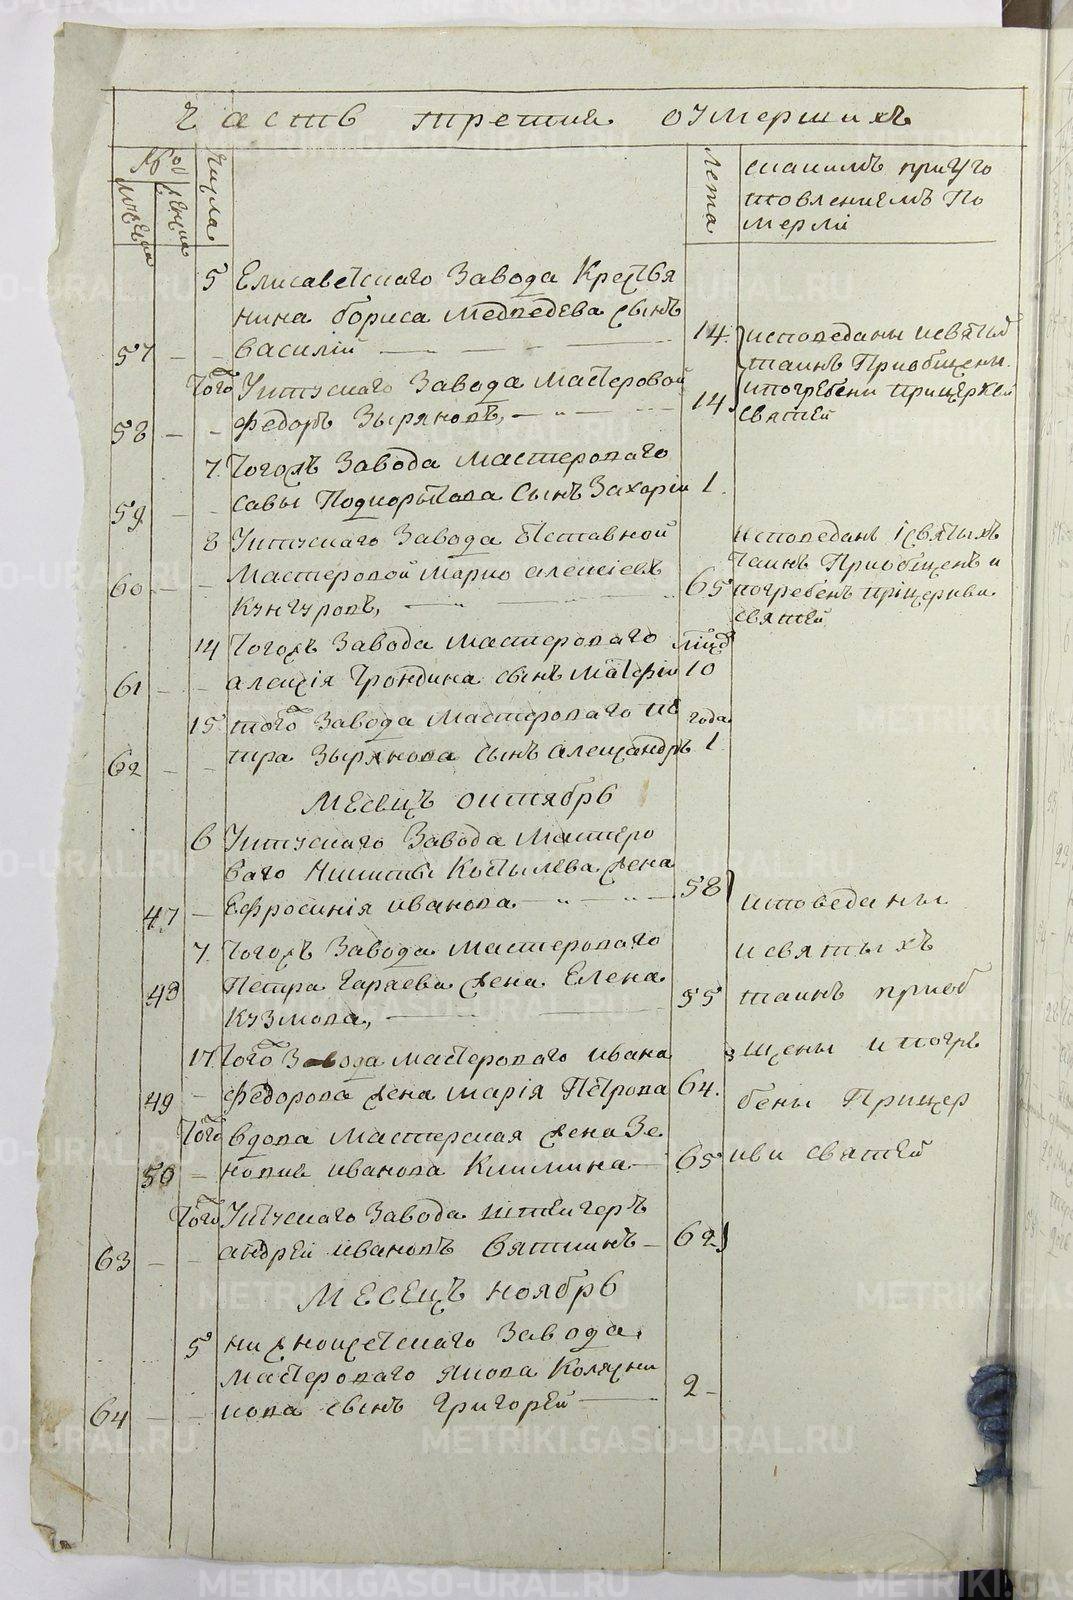 Часть третия оумерших
№
Числа
Лета
скакимъ приуго
товлениемъ По
мерли
5 Елисаветскаго Завода Крестья
нина бориса медведева сынъ
57 василій 14.
исповеданы исвятых
таинъ Приобщены
ипогребены прицеркви
святей
Того Уктускаго Завода мастеровой
58 федоръ Зыряновъ, 14.
7. Тогожъ Завода мастероваго
59 савы Подкорытова Сынъ Захаріи 1.
8 Уктускаго Завода Отставной
Мастеровой марко алексіевъ
60 Кунгуровъ, 65
исповеданъ ісвятыхъ
Таинъ Приобщенъ и
погребенъ пріцеркви
святей
14 Тогожъ Завода мастероваго
61 алексія Трондина сынъ матфіи 10
15 того Завода мастероваго пе года
62 тра Зырянова сынъ александръ 1.
МЕсецъ октябрь
6 Уктускаго Завода Мастеро
ваго Никиты Костылева жена
47 Ефросинія иванова 58
исповеданы
исвятыхъ
таинъ приоб
щены ипогре
бены Прицер
кви святей
7. Тогожъ Завода мастероваго
48 Петра Гараева жена Елена 55
Кузмова,
17 Того Завода мастероваго ивана
49 федорова жена марія Петрова 64.
Того вдова мастерская жена Зе
50 новия иванова Климина 65
Того Уктускаго Завода штейгеръ
63 андрей ивановъ Вяткинъ 62
МЕСЕЦЪ ноябрь
5 нижноисетскаго Завода
мастероваго якова Коляжни
64 кова сынъ Григорей 2